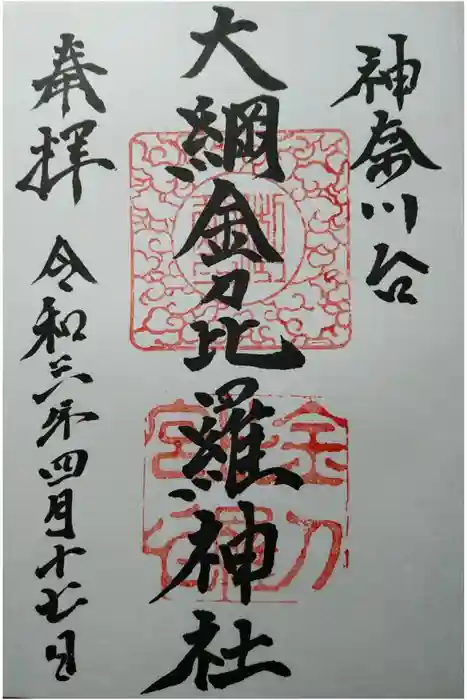 神奈川台
大綱金刀比羅神社
奉拝 令和三年四月十七日